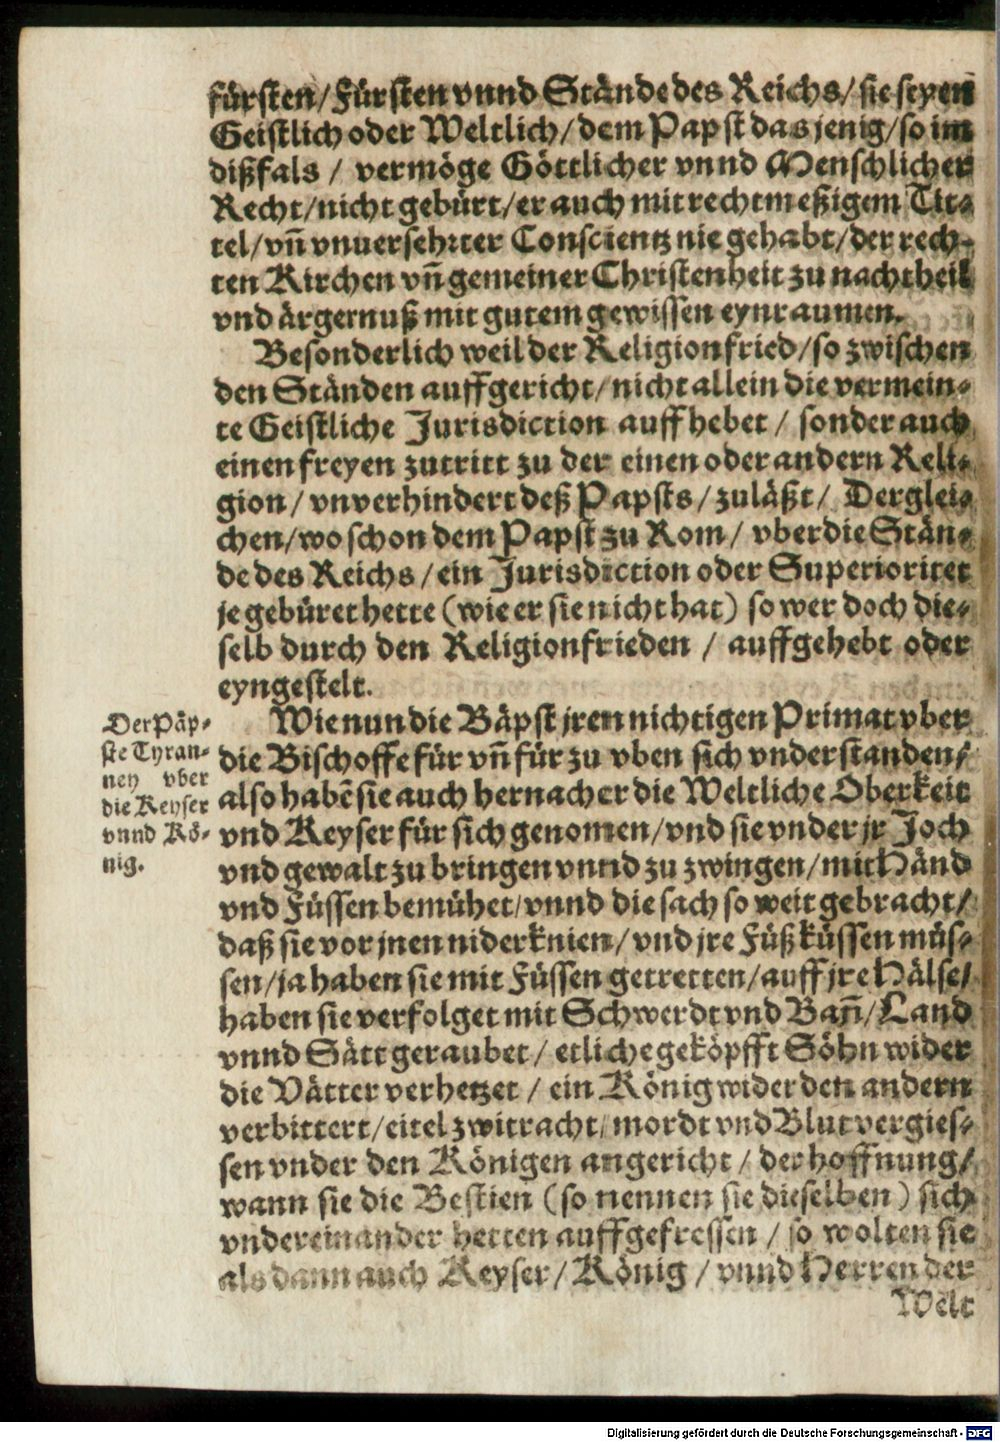 fürsten/Fürsten vnnd Stände des Reichs/sie seyen
Geistlich oder Weltlich/dem Papst das jenig/so im
dißfals / vermöge Göttlicher vnnd Menschlicher
Recht/nicht gebürt/er auch mit rechtmeßigem Tit-
tel/vñ vnuersehrter Conscientz nie gehabt/der rech-
ten Kirchen vñ gemeiner Christenheit zu nachtheil
vnd ärgernuß mit gutem gewissen eynraumen.
Besonderlich weil der Religionfried/so zwischen
den Ständen auffgericht/nicht allein die vermein-
te Geistliche Jurisdiction auffhebet / sonder auch
einen freyen zutritt zu der einen oder andern Reli-
gion/vnverhindert deß Papsts/zuläßt/ Derglei-
chen/wo schon dem Papst zu Rom/ vber die Stän-
de des Reichs/ein Jurisdiction oder Superioritet
je gebüret hette (wie er sie nicht hat) so wer doch die-
selb durch den Religionfrieden / auffgehebt oder
eyngestelt.
Wie nun die Bäpst jren nichtigen Primat vber
die Bischoffe für vñ für zu vben sich vnderstanden/
also habẽ sie auch hernacher die Weltliche Oberkeit
vnd Keyser für sich genomen/vnd sie vnder jr Joch
vnd gewalt zu bringen vnnd zu zwingen/mit Händ
vnd Füssen bemühet/vnnd die sach so weit gebracht/
daß sie vor jnen niderknien/vnd jre Füß küssen müs-
sen/ja haben sie mit Füssen getretten/auff jre Hälse/
haben sie verfolget mit Schwerdt vnd Bañ/Land
vnnd Sätt geraubet/etliche geköpfft Söhn wider
die Vätter verhetzet / ein König wider den andern
verbittert/eitel zwitracht/mordt vnd Blutvergies-
sen vnder den Königen angericht / der hoffnung/
wann sie die Bestien (so nennen sie dieselben) sich
vndereinander hetten auffgefressen / so wolten sie
als dann auch Keyser/König / vnnd Herren der
Welt
Der Päp-
ste Tyran-
ney vber
die Keyser
vnnd Kö-
nig.
Digitalisierung gefördert durch die Deutsche Forschungsgemeinschaft - DFG